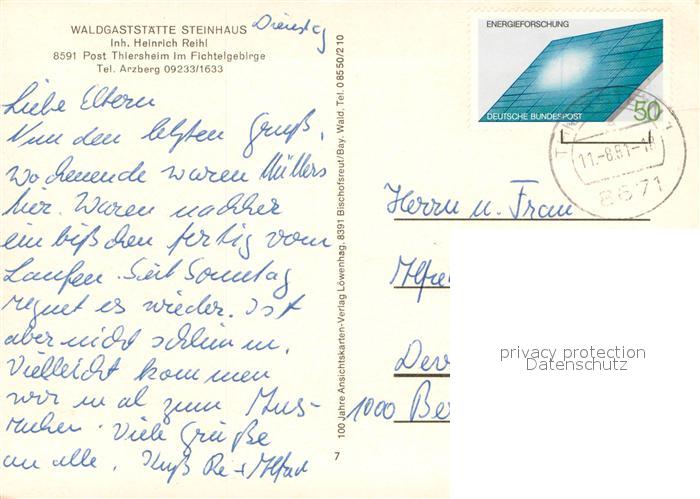 WALDGASTSTÄTTE STEINHAUS
Inh. Heinrich Reihl
8591 Post Thiersheim im Fichtelgebirge
Tel. Arzberg 09233/1633
Dienstag
Liebe Eltern
Nun den letzten Gruß.
Wochenende waren Müllers
hier. Waren nachher
ein bißchen fertig vom
Laufen. Seit Sonntag
regnet es wieder. Ist
aber nicht schlimm.
Vielleicht kommen
wir mal zum Aus-
ruhen. Viele Grüße
an alle. Kuß Re + Alfred
100 Jahre Ansichtskarten-Verlag Löwenhag, 8391 Bischofsreut/Bay. Wald, Tel. 08550/210
7
ENERGIEFORSCHUNG
DEUTSCHE BUNDESPOST
50
11.-8.81-1
8671
Herrn u. Frau
Alfre
1000 Be
privacy protection
Datenschutz